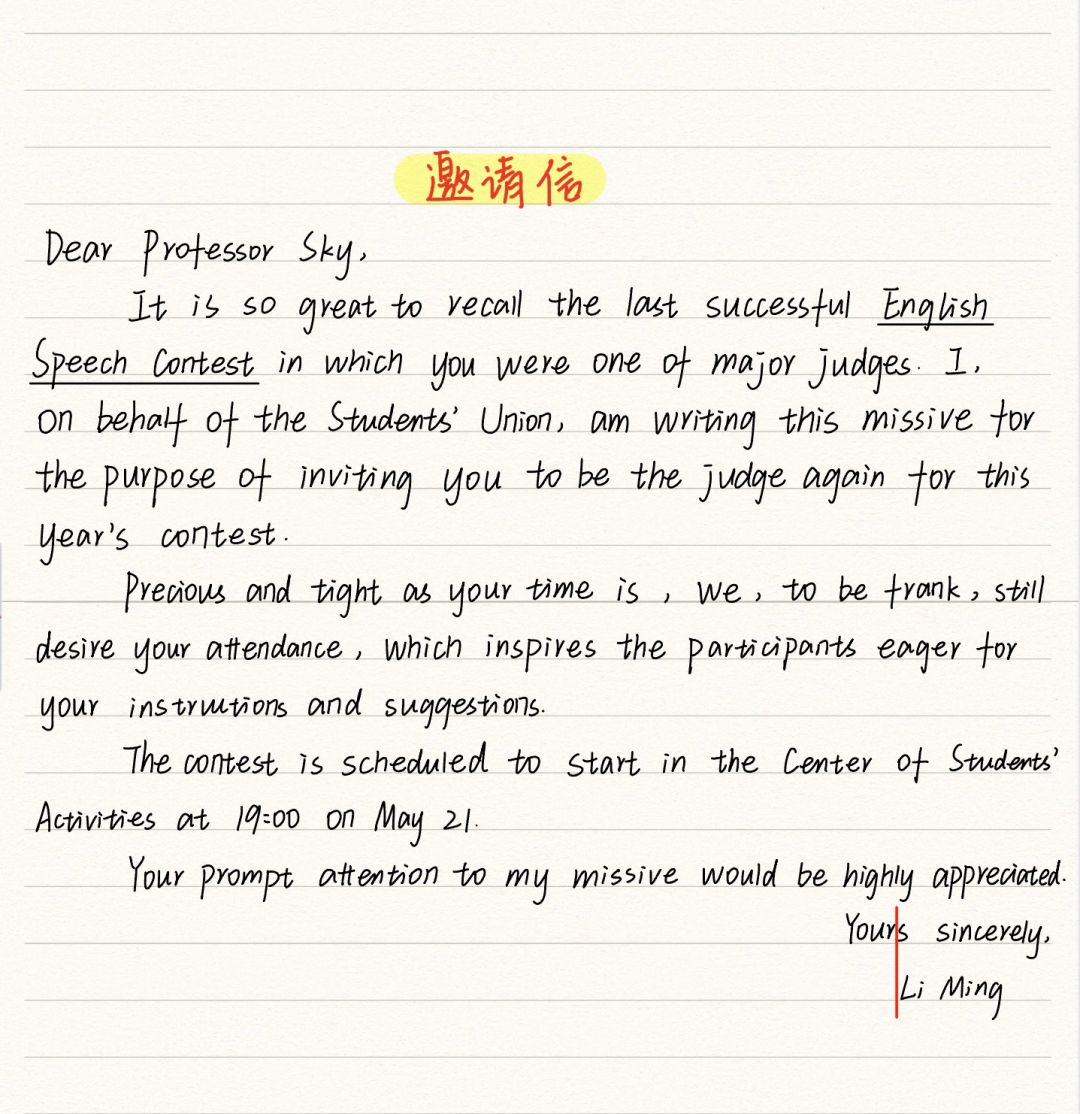 邀请信
Dear Professor Sky,
It is so great to recall the last successful English
Speech Contest in which you were one of major judges. I,
on behalf of the Students' Union, am writing this missive for
the purpose of inviting you to be the judge again for this
year's contest.
Precious and tight as your time is, we, to be frank, still
desire your attendance, which inspires the participants eager for
your instructions and suggestions.
The contest is scheduled to start in the Center of Students'
Activities at 19:00 on May 21.
Your prompt attention to my missive would be highly appreciated.
Yours sincerely,
Li Ming